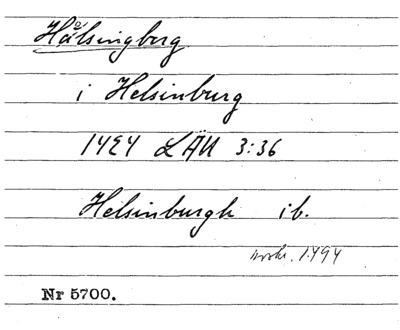 Hälsingborg
i Helsinburg
1494 LÄU 3:36
Helsinburgh ib.
1494
Nr 5700.